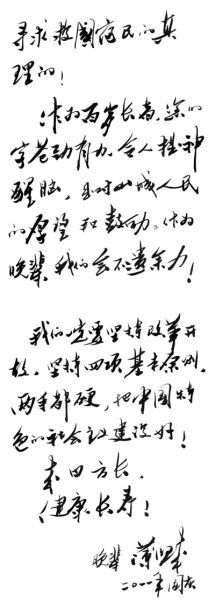 寻求救国富民的真
理的！
作为百岁长者，您的
字苍劲有力，令人提神
醒脑，且对山城人民
的厚望和鼓励。作为
晚辈，我们会不遗余力！
我们一定要坚持改革开
放，坚持四项基本原则，
两手都硬，把中国特
色的社会主义建设好！
来日方长，
健康长寿！
晚辈 薄熙来
二〇一一年国庆